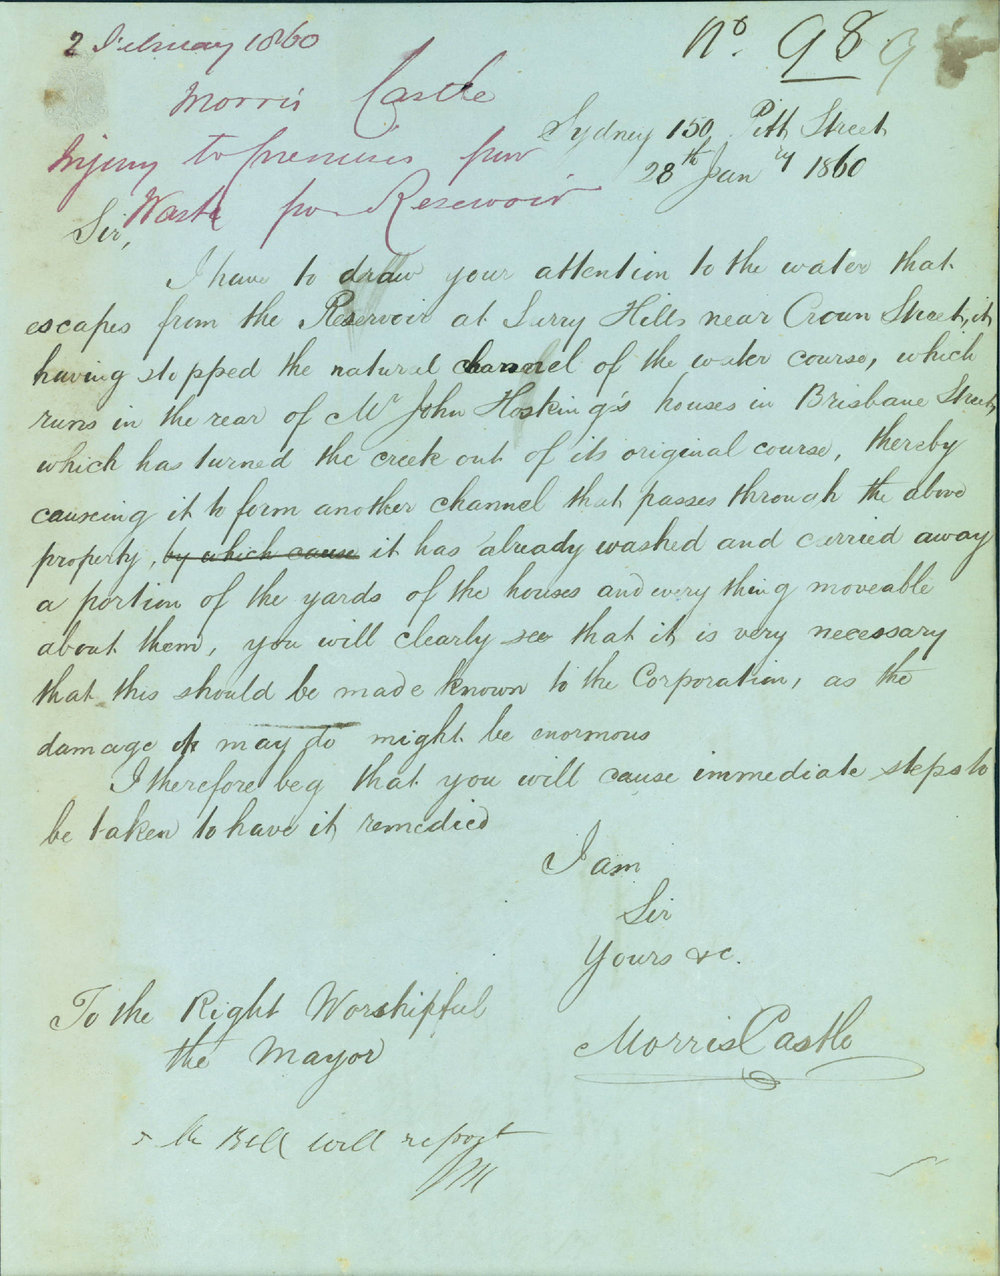 2 February 1860
No. 98 9
Morris Castle
Sydney 150 Pitt Street
Injury to premises from
28th Janry 1860
Waste from Reservoir
Sir,
I have to draw your attention to the water that
escapes from the Reservoir at Surry Hills near Crown Street, it
having stopped the natural channel of the water course, which
runs in the rear of Mr John Hosking's houses in Brisbane Street,
which has turned the creek out of its original course, thereby
causeing it to form another channel that passes through the above
property, by which cause it has already washed and carried away
a portion of the yards of the houses and every thing moveable
about them, you will clearly see that it is very necessary
that this should be made known to the Corporation, as the
damage it may do might be enormous
I therefore beg that you will cause immediate steps to
be taken to have it remedied
I am
Sir
Yours &c.
To the Right Worshipful
the Mayor
Morris Castle
Mr Bell will report
M